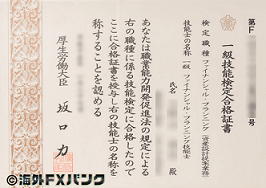 第F
号
一級技能検定合格証書
検定職種 ファイナンシャル・プランニング(資産設計提案業務)
技能士の名称 一級 ファイナンシャル・プランニング技能士
氏名
殿
あなたは職業能力開発促進法の規定による
右の職種に係る技能検定に合格したので
ここに合格証書を授与し右の技能士の名称を
称することを認める
厚生労働大臣
坂口力
海外FXバンク